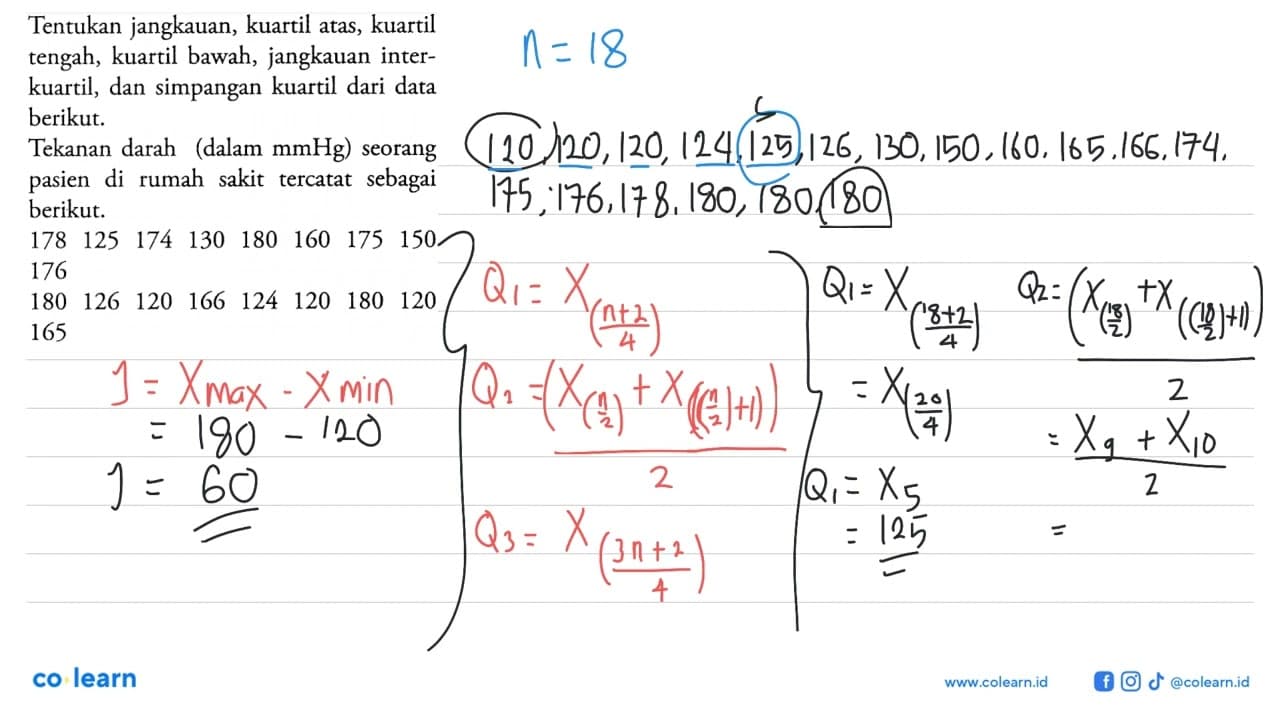 Tentukan jangkauan, kuartil atas, kuartil
tengah, kuartil bawah, jangkauan inter-
kuartil, dan simpangan kuartil dari data
berikut.
Tekanan darah (dalam mmHg) seorang
pasien di rumah sakit tercatat sebagai
berikut.
178 125 174 130 180 160 175 150
176
180 126 120 166 124 120 180 120
165
n = 18
5
120, 120, 120, 124, 125, 126, 130, 150, 160, 165, 166, 174,
175, 176, 178, 180, 180, 180
J = Xmax - Xmin
= 180 - 120
J = 60
Q1 = X((n+2)/4)
Q2 = (X(n/2) + X((n/2)+1))/2
Q3 = X((3n+2)/4)
Q1 = X((18+2)/4)
= X(20/4)
Q1 = X5
= 125
Q2 = (X(18/2) + X((18/2)+1))/2
= (X9 + X10)/2
=
co learn
www.colearn.id
@colearn.id